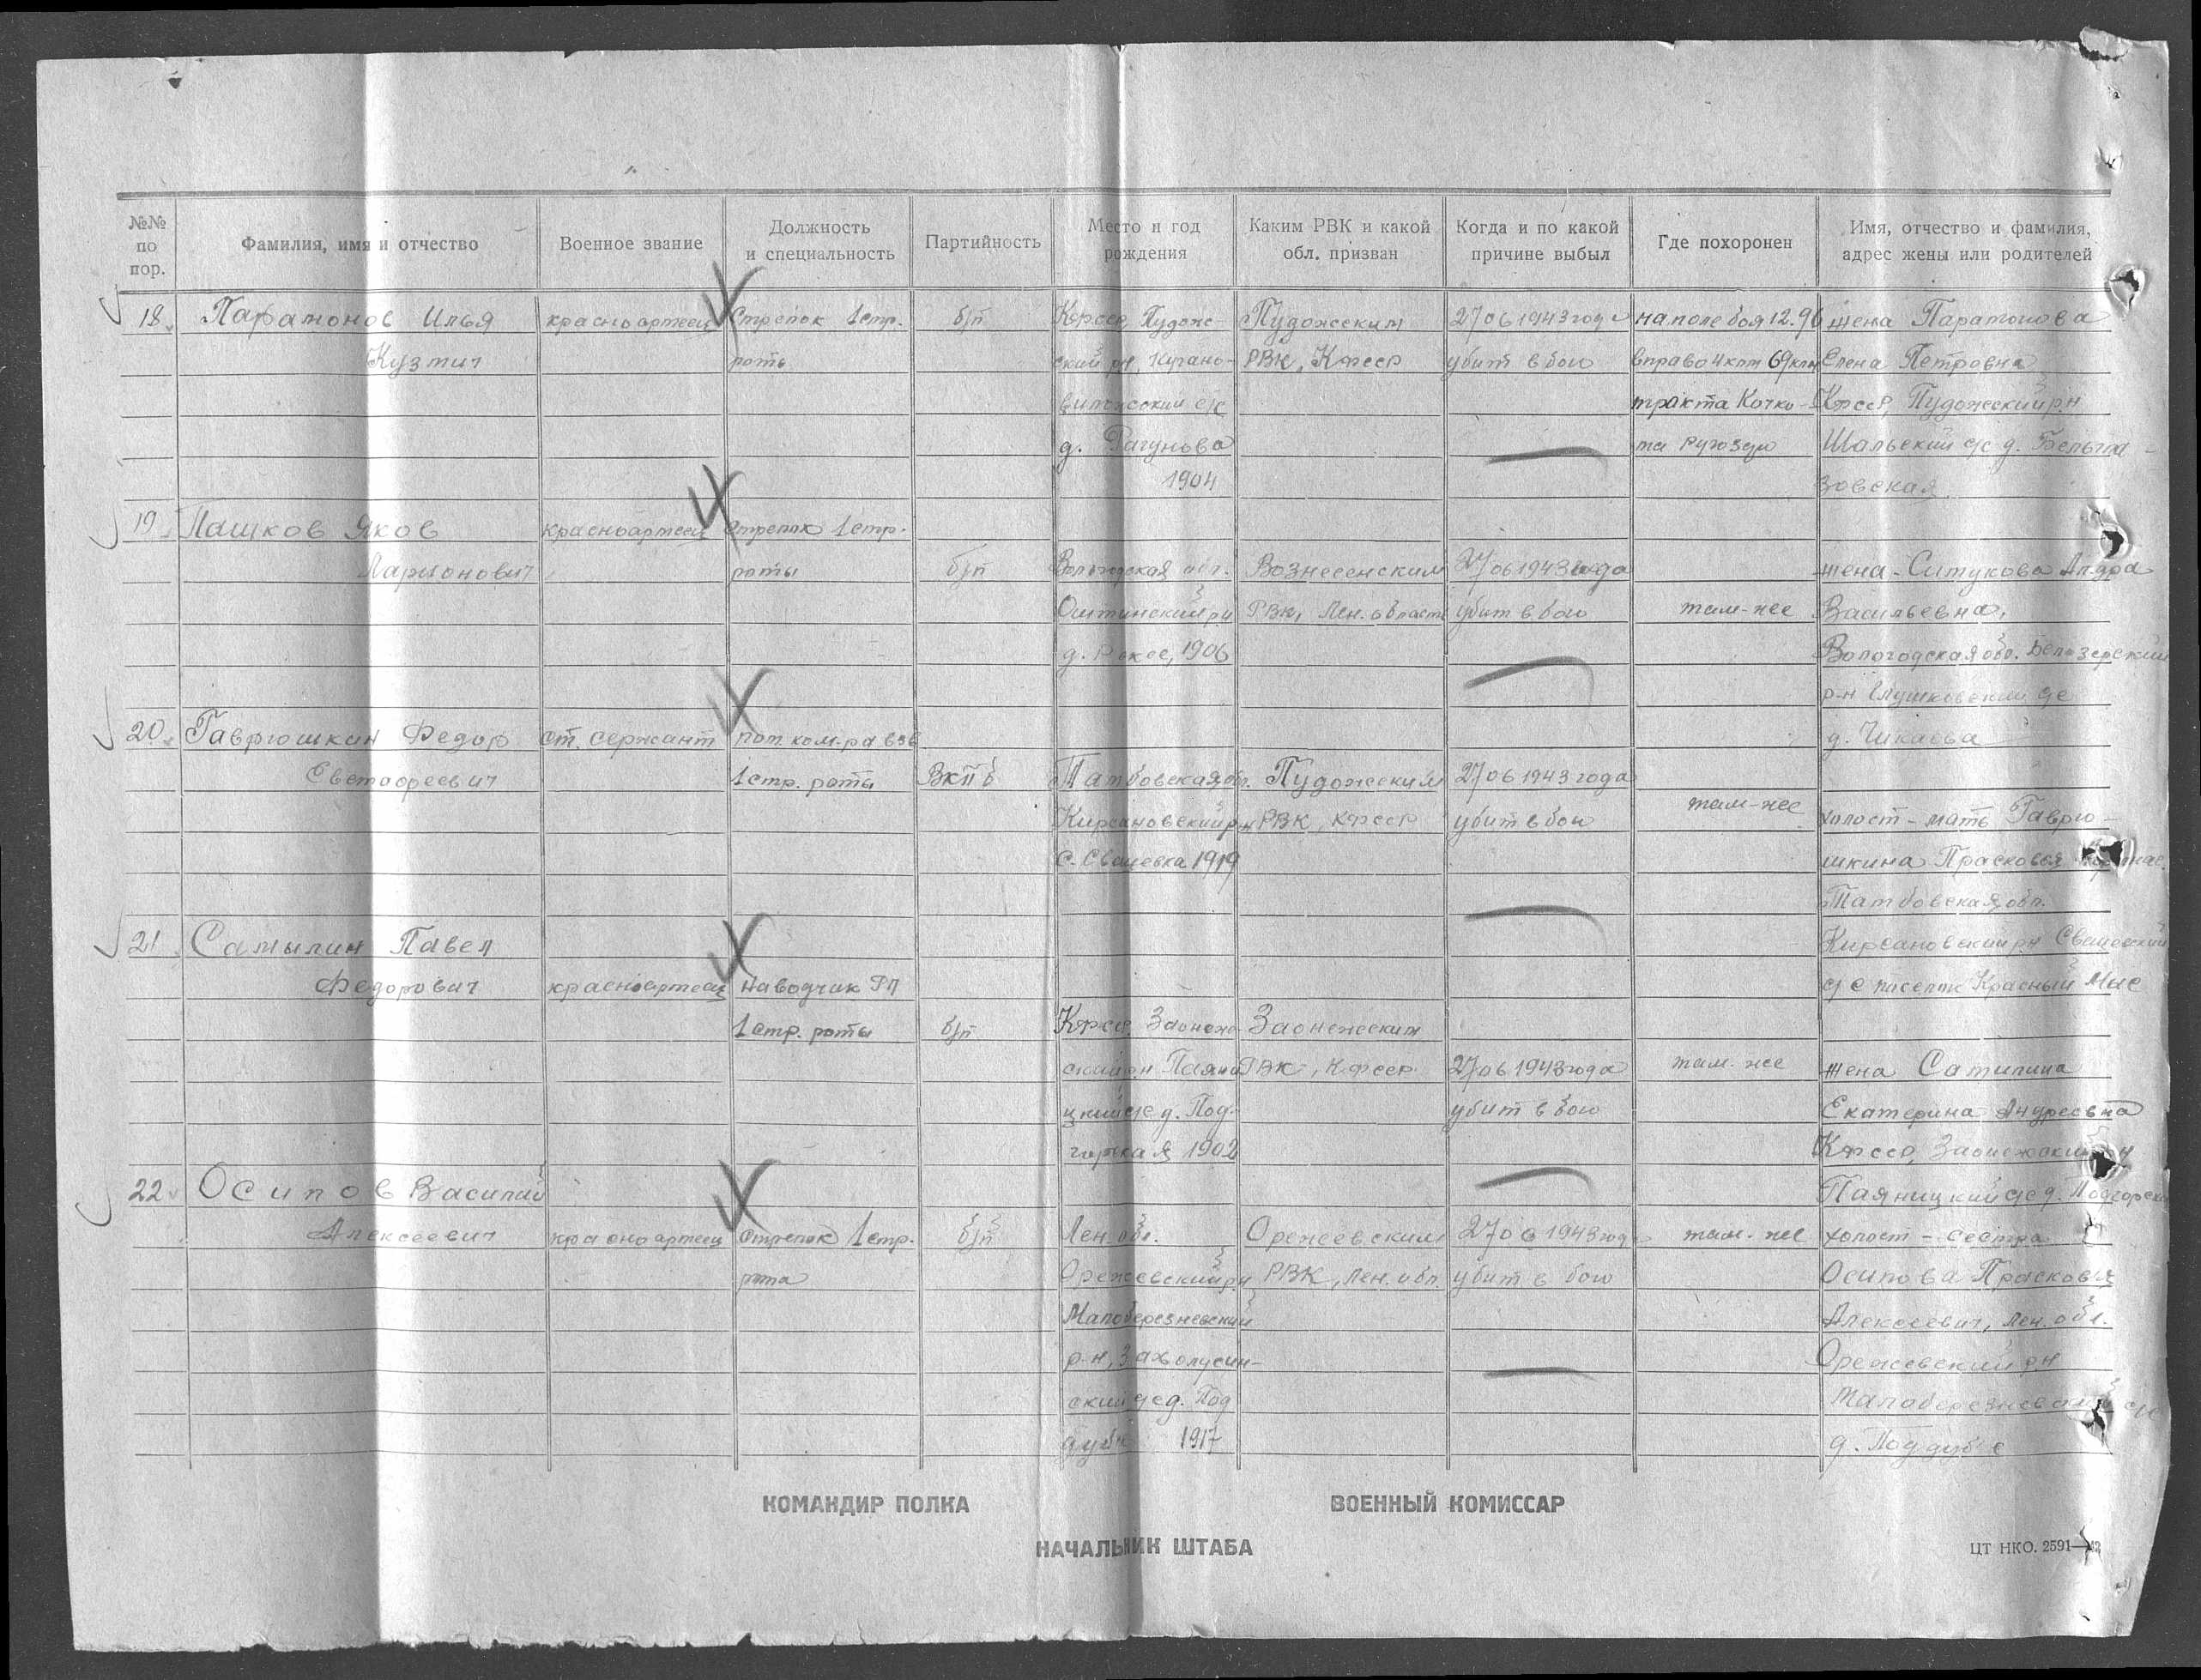 №№ по пор.
Фамилия, имя и отчество
Военное звание
Должность и специальность
Партийность
Место и год рождения
Каким РВК и какой обл. призван
Когда и по какой причине выбыл
Где похоронен
Имя, отчество и фамилия, адрес жены или родителей
18 Парамонов Илья красноармеец Стрелок 1 стр. б/п КФССР, Пудож- Пудожским 27 06 1943 года на поле боя 12.9 жена Парамонова
Кузмич роты ский рн, РВК, КФССР убит в бою вправо 4 км 69 клм Елена Петровна
с/с тракта Кочко- КФССР, Пудожский рн
д. Рагунова ма Ругозеро Шальский с/с д.
1904 зовская
19 Пашков Яков красноармеец стрелок 1 стр.
Ларионович роты б/п Вологодская обл. Вознесенским 27 06 1943 года жена - Ситукова
Оштинский рн РВК, Лен. область убит в бою там-же Васильевна,
д. 1906 Вологодская обл. Белозерский
р-н с/с
20 Гаврюшкин Федор ст. сержант пом. ком-ра взв д. Чикаева
1 стр. роты ВКПб Тамбовская обл. Пудожским 27 06 1943 года
Кирсановский рн РВК, КФССР убит в бою там-же холост - мать Гаврю-
с. 1919 шкина Прасковья
Тамбовская обл.
21 Самылин Павел Кирсановский рн
Федорович красноармеец Наводчик РП с/с поселок Красный Мыс
1 стр. роты б/п КФССР Заонеж- Заонежским
ский рн Паяни- РВК, КФССР 27 06 1943 года там-же жена Самилина
цкий с/с д. Под- убит в бою Екатерина Андреевна
горская 1902 КФССР, Заонежский рн
22 Осипов Василий Паяницкий с/с д. Подгорская
Алексеевич красноармеец Стрелок 1 стр. б/п Лен. обл. Орежеевским 27 06 1943 года там-же холост - сестра
рота Орежевский рн РВК, Лен. обл. убит в бою Осипова Прасковья
Малоберезневский Алексеевич, Лен. обл.
р-н, Орежевский рн
ский с/с д. Под Малоберезневский с/с
1917 д. Поддубье
КОМАНДИР ПОЛКА ВОЕННЫЙ КОМИССАР
НАЧАЛЬНИК ШТАБА
ЦТ НКО. 2591—42